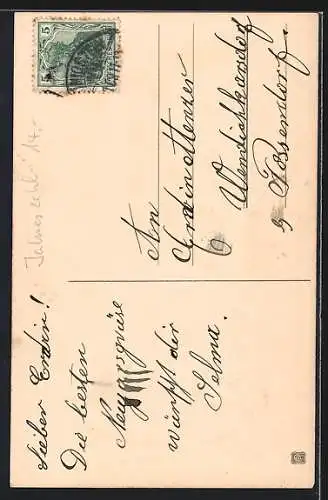 Lieber Erdin!
Die besten
Neujarsgrüse
wünscht dir
Selma.
An
Erdin Menzer
Wendishkarsdorf
b Possendorf.
Jahreszahl 14.-
5